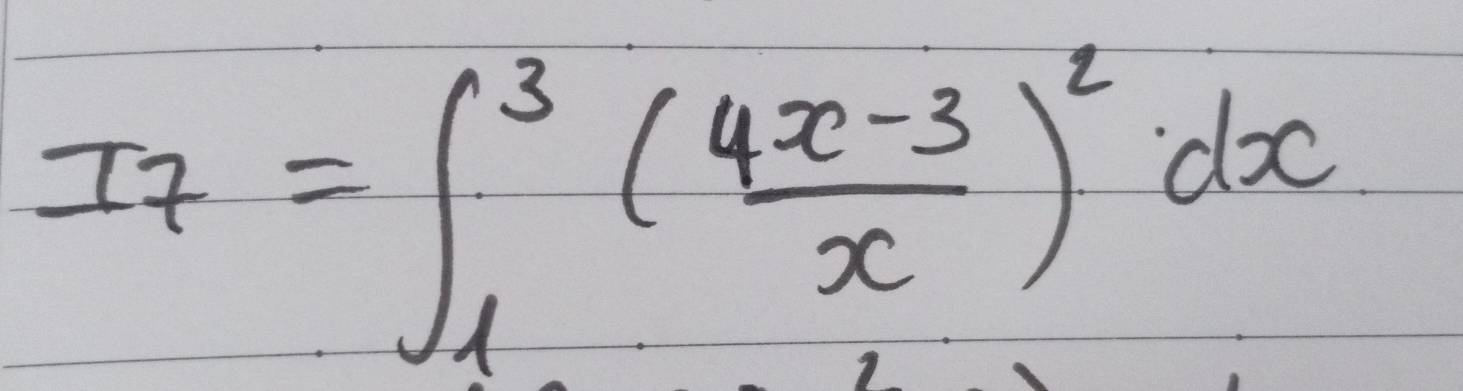 I7 = ∫₁³ ( (4x - 3) / x )² dx
2